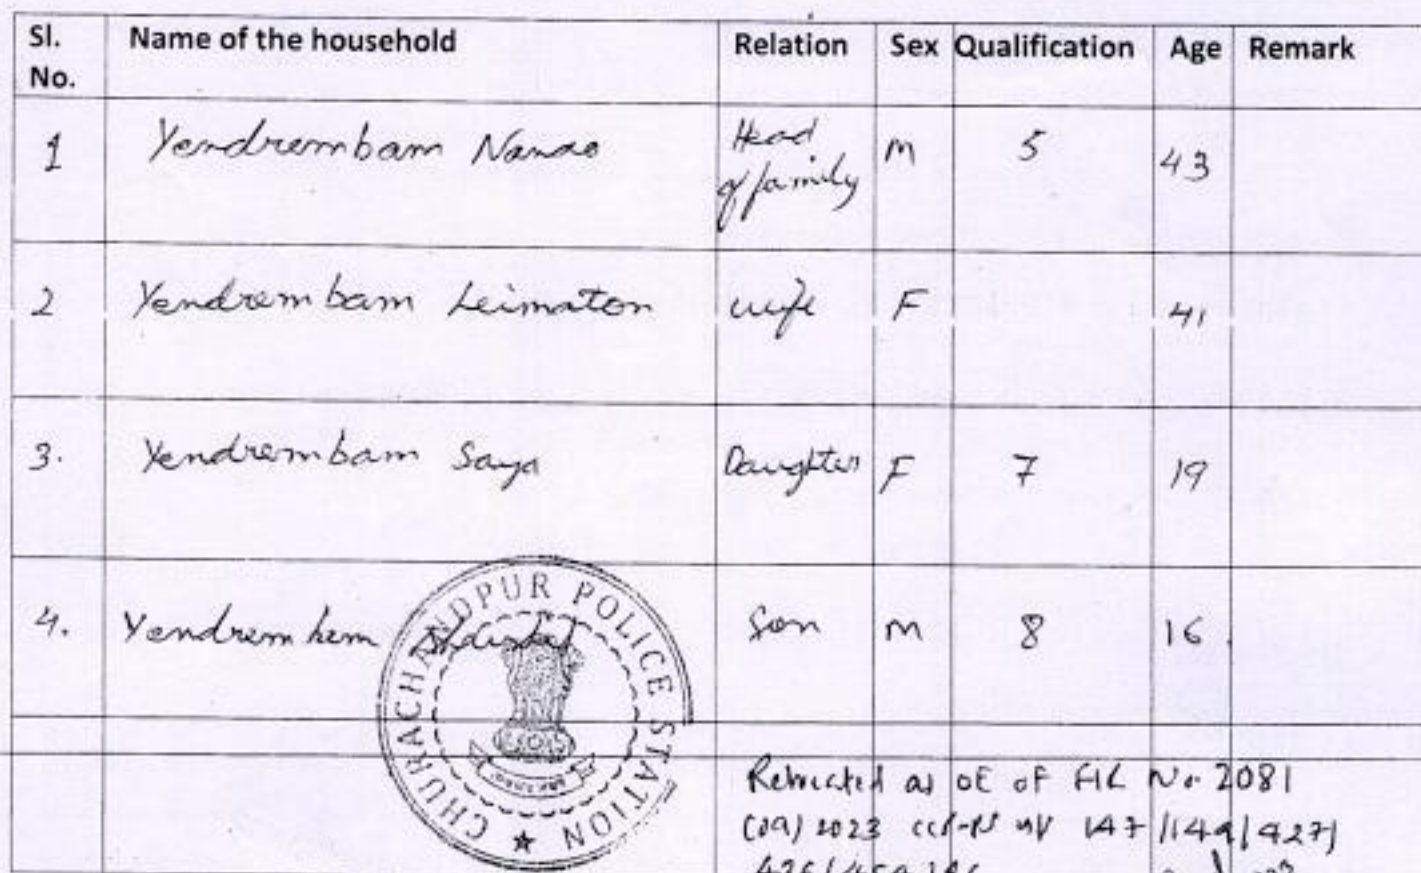 Sl. No. Name of the household Relation Sex Qualification Age Remark
1 Yendrembam Nanao Head of family M 5 43
2 Yendrembam Leimaton wife F 41
3. Yendrembam Saya Daughter F 7 19
4. Yendrem Son M 8 16
CHURACHANDPUR POLICE STATION
as OE of FIR No. 2081
2023 147/149/427/